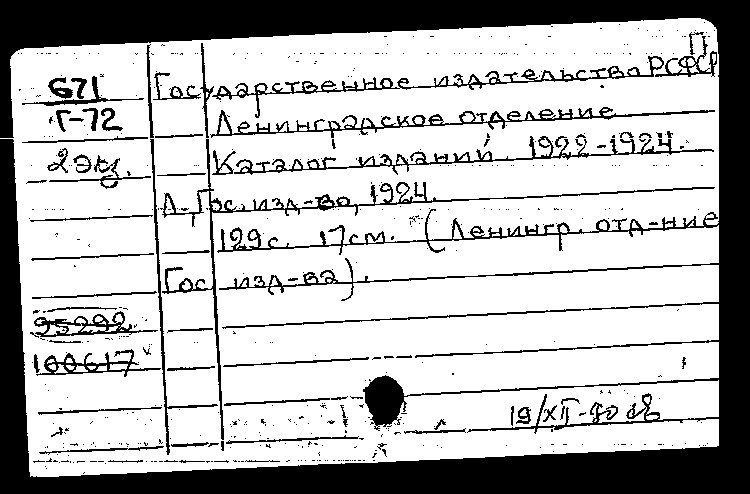 П
671
Г-72
2 экз.
Государственное издательство РСФСР
Ленинградское отделение
Каталог изданий. 1922-1924.
Л., Гос. изд-во, 1924.
129 с. 17 см. (Ленингр. отд-ние
Гос. изд-ва).
95292
100617
19/XII-90